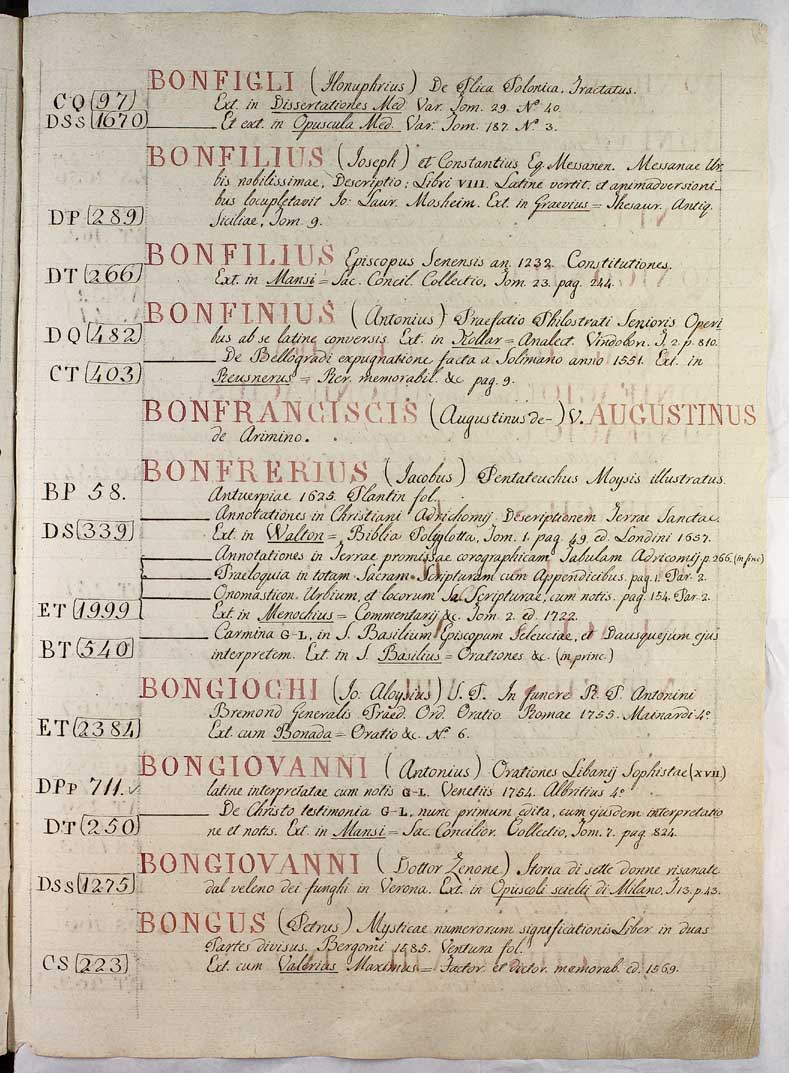 BONFIGLI (Honuphrius) De Plica Polonica. Tractatus.
CQ 97 Ext. in Dissertationes Med. Var. Tom. 29. Nº 40.
DSS 1670 Et ext. in Opuscula Med. Var. Tom. 187. Nº 3.
BONFILIUS (Joseph) et Constantius Eq. Messanen. Messanae Ur-
bis nobilissimae, Descriptio; Libri VIII. Latine vertit, et animadversioni-
bus locupletavit Jo: Laur. Mosheim. Ext. in Graevius = Thesaur. Antiq.
DP 289 Siciliae, Tom. 9.
BONFILIUS Episcopus Senensis an. 1232. Constitutiones.
DT 266 Ext. in Mansi = Sac. Concil. Collectio, Tom. 23. pag. 244.
BONFINIUS (Antonius) Praefatio Philostrati Senioris Operi
DQ 482 bus ab se latine conversis. Ext. in Kollar = Analect. Vindobon. T. 2. p. 810.
De Bellogradi expugnatione facta a Solimano anno 1551. Ext. in
CT 403 Reusnerus = Rer. memorabil. &c pag. 9.
BONFRANCISCIS (Augustinus de-) V. AUGUSTINUS
de Arimino.
BONFRERIUS (Jacobus) Pentateuchus Moysis illustratus.
BP 58. Antuerpiae 1625. Plantin fol.
Annotationes in Christiani Adrichomij Descriptionem Terrae Sanctae.
DS 339 Ext. in Walton = Biblia Polyglotta, Tom. 1. pag. 49. ed. Londini 1657.
Annotationes in Terrae promissae corographicam Tabulam Adricomij p. 266. (in fine)
Praeloquia in totam Sacram Scripturam cum Appendicibus. pag. 1. Par. 2.
Onomasticon Urbium, et locorum Sa. Scripturae, cum notis. pag. 154. Par. 2.
ET 1999 Ext. in Menochius = Commentarij &c. Tom. 2. ed. 1722.
Carmina G-L, in S. Basilium Episcopum Seleuciae, et Dausquejum ejus
BT 540 interpretem. Ext. in S. Basilius = Orationes &c. (in princ.)
BONGIOCHI (Jo: Aloysius) S. P. In funere R. P. Antonini
Bremond Generalis Praed. Ord. Oratio. Romae 1755. Mainardi 4º
ET 2384 Ext. cum Bonada = Oratio &c. Nº 6.
BONGIOVANNI (Antonius) Orationes Libanij Sophistae (XVII)
DPp 711. latine interpretatae cum notis G-L. Venetiis 1754. Albritius 4º
De Christo testimonia G-L, nunc primum edita, cum ejusdem interpretatio
DT 250 ne et notis. Ext. in Mansi = Sac. Concilior. Collectio, Tom. 7. pag. 824.
BONGIOVANNI (Dottor Zenone) Storia di sette donne risanate
DSS 1275 dal veleno dei funghi in Verona. Ext. in Opuscoli scielti di Milano, T. 13. p. 43.
BONGUS (Petrus) Mysticae numerorum significationis Liber in duas
Partes divisus. Bergomi 1585. Ventura fol.
CS 223 Ext. cum Valerius Maximus = Factor. et dictor. memorab. ed. 1569.